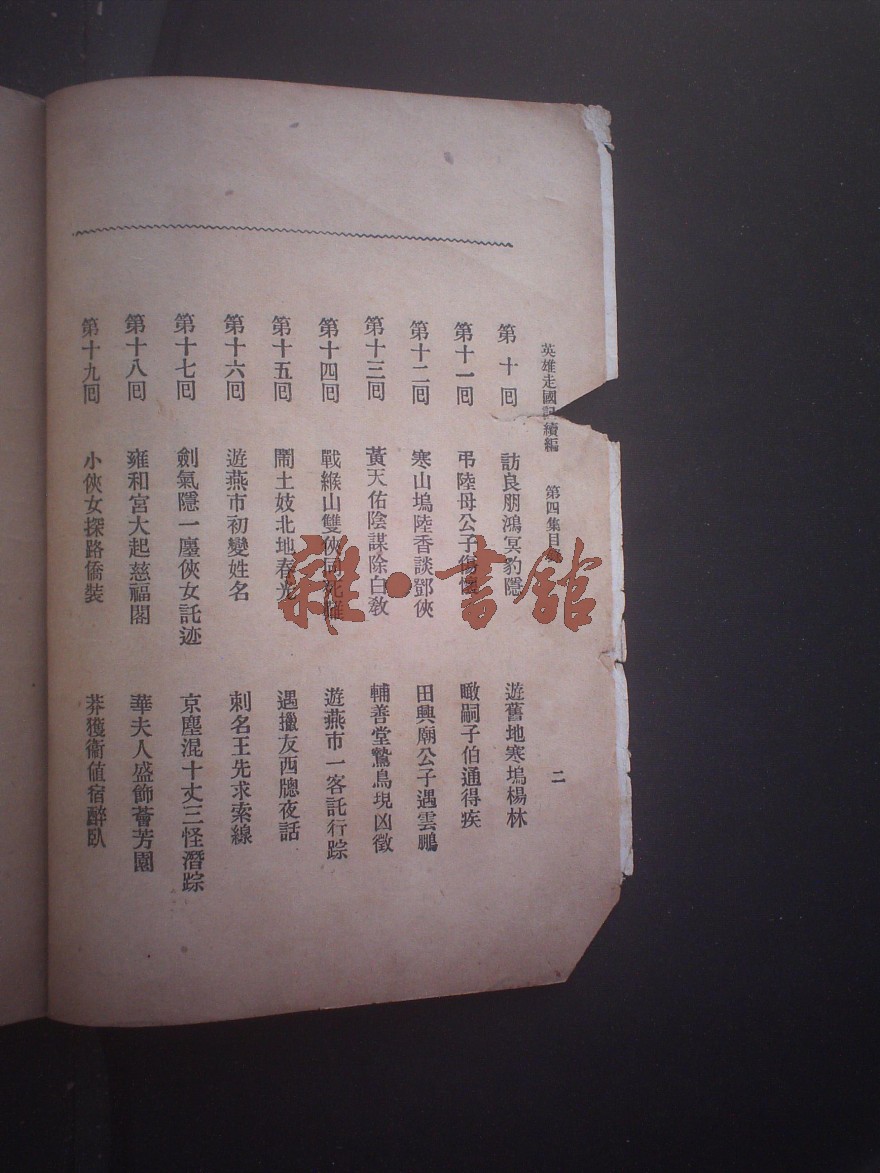 英雄走國記續編 第四集目 二
第十回 訪良朋鴻冥豹隱 遊舊地寒塢楊林
第十一回 弔陸母公子傷懷 瞰嗣子伯通得疾
第十二回 寒山塢陸香談鄧俠 田興廟公子遇雲鵬
第十三回 黃天佑陰謀除白教 輔善堂鷙鳥現凶徵
第十四回 戰緱山雙俠同死 遊燕市一客託行踪
第十五回 鬧土妓北地春光 遇獵友西牕夜話
第十六回 遊燕市初變姓名 刺名王先求索線
第十七回 劍氣隱一廛俠女託迹 京塵混十丈三怪潛踪
第十八回 雍和宮大起慈福閣 華夫人盛飾薈芳園
第十九回 小俠女探路僑裝 莽獲衛值宿醉臥
雜·書館